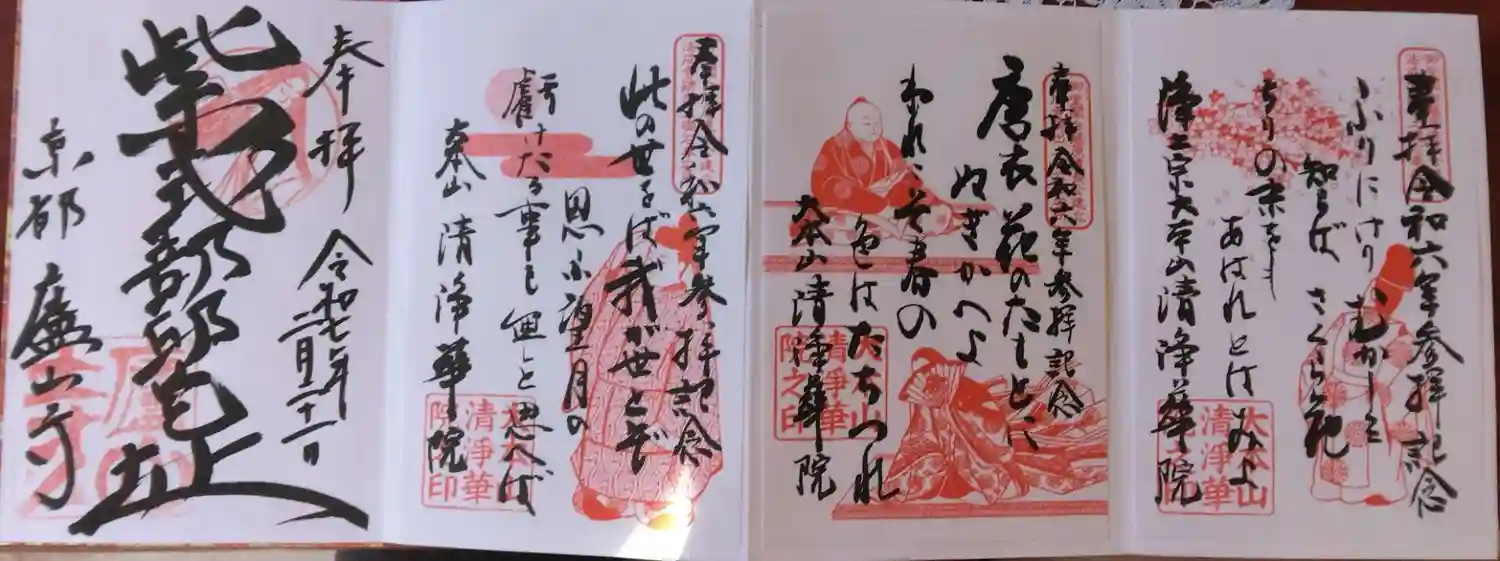 奉拝 令和六年参拝記念
ふりにけり むかしを
知らば さくら花
ちりの末をも
あはれとはみよ
浄土宗大本山清浄華院
大本山
清浄華
院之印
奉拝 令和六年参拝記念
唐衣 花のたもとに
ぬぎかへよ
われこそ春の
色はたちつれ
大本山 清浄華院
大本山
清浄華
院之印
奉拝 令和六年参拝記念
此の世をば我が世とぞ
思ふ望月の
虧けたる事も無しと思へば
大本山 清浄華院
大本山
清浄華
院之印
奉拝
令和七年
二月二十一日
紫式部邸宅址
京都 廬山寺